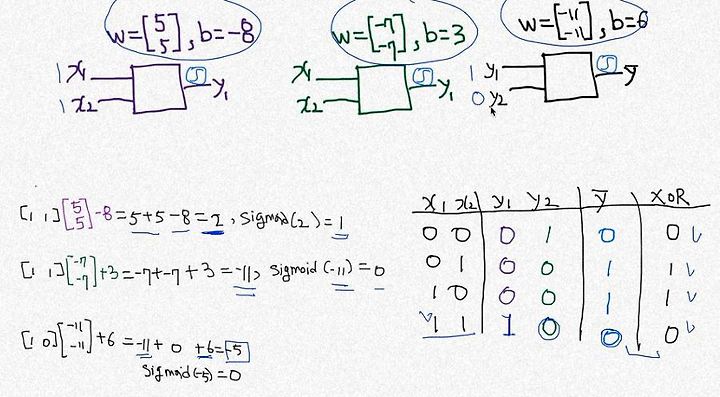 w=[5 5], b=-8
w=[-7 -7], b=3
w=[-11 -11], b=6
1 x1
1 x2
S
y1
x1
x2
S
y1
1 y1
0 y2
S
ȳ
[1 1][5 5]-8=5+5-8=2, sigmoid(2)=1
[1 1][-7 -7]+3=-7+-7+3=-11, sigmoid(-11)=0
[1 0][-11 -11]+6=-11+0+6=-5
sigmoid(-5)=0
x1 x2 y1 y2 ȳ XOR
0 0 0 1 0 0 ✓
0 1 0 0 1 1 ✓
1 0 0 0 1 1 ✓
✓ 1 1 1 0 0 0 ✓